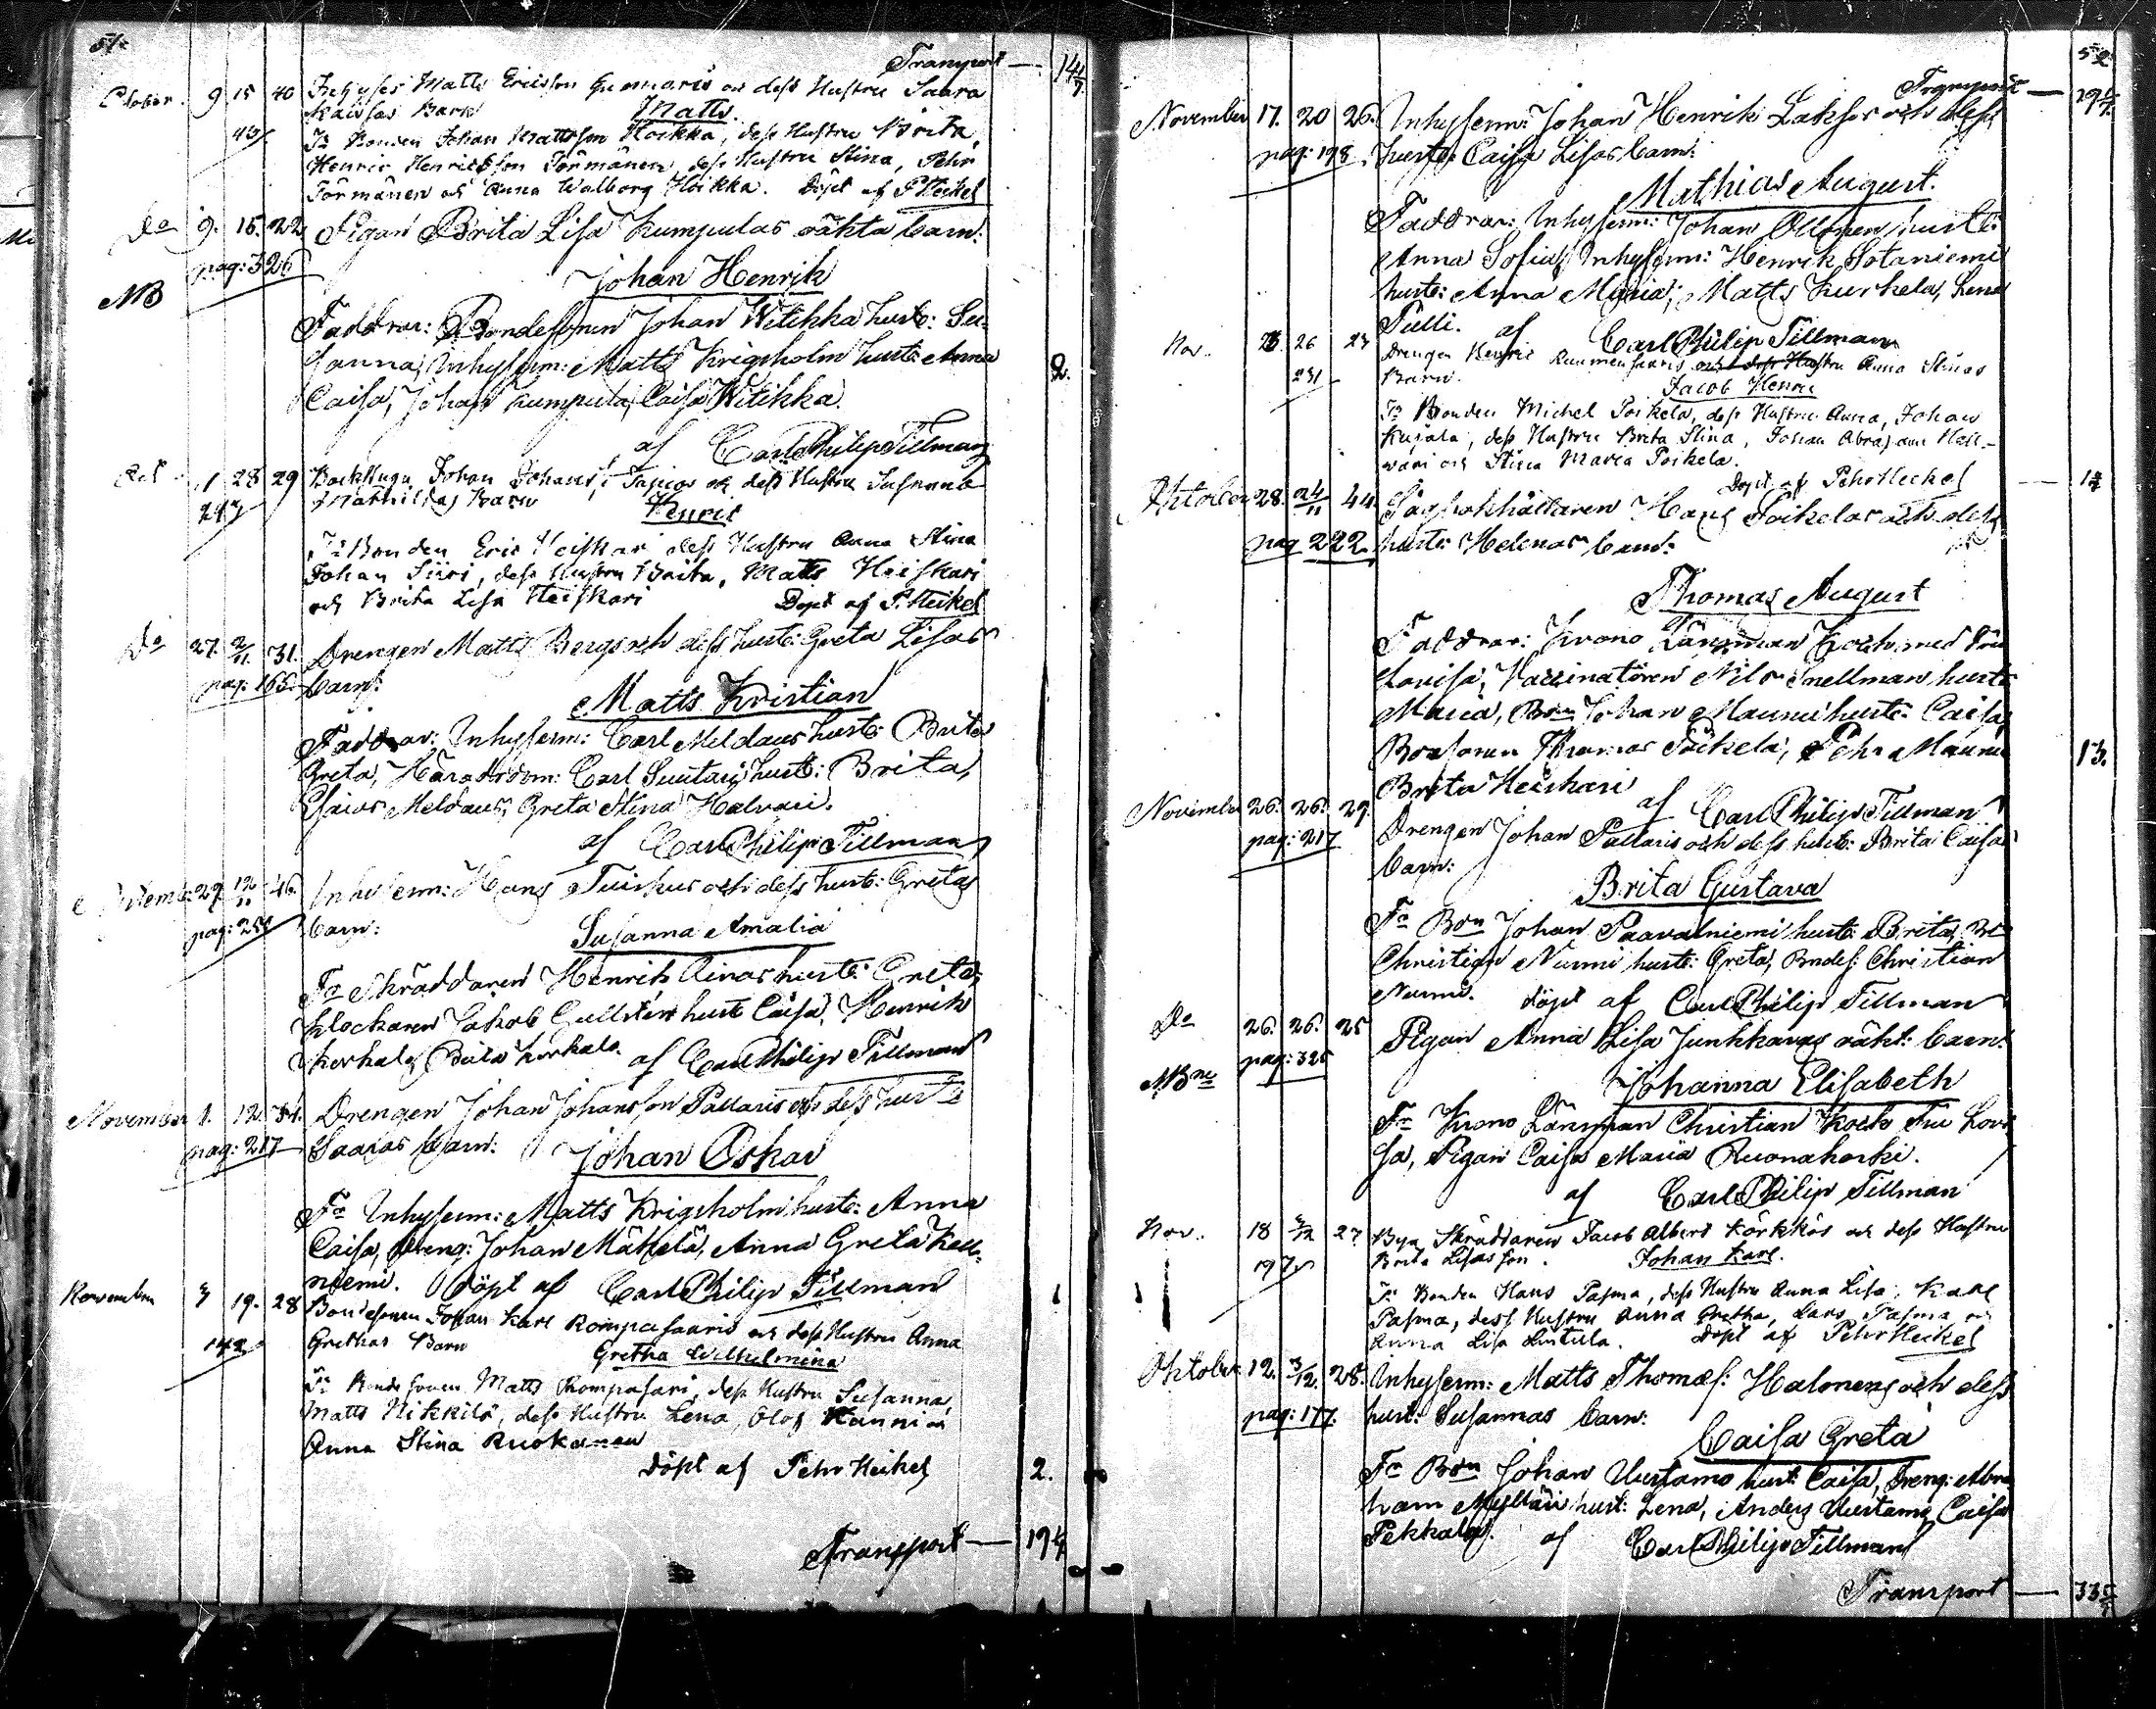 51.
Transport — 14 4/7
October. 9 15 40 Inhyses Matts Ericsson Guomaris och dess Hustru Saara
Kaisas Barn Matts.
43 Fr Bonden Johan Mattsson Hoikka, dess Hustru Brita,
Henric Henricsson Törmänen dess Hustru Stina, Pehr
Törmänen och Anna Walborg Hoikka. Döpt af P Heikel
Do 9. 15. 22 Pigan Brita Lisa Kumpulas oäkta barn:
pag: 326
NB Johan Henrik
Faddrar: Bondesonen Johan Witikka hust: Su-
sanna, Inhysem: Matts Krigsholm hust: Anna
Caisa, Johan Kumpula, Caisa Witikka. 2.
af Carl Philip Tillman
Oct 1 28 29 Backstugu Johan Johans: och dess Hustru Susanna
Mathildas Barn Henric
Fr Bonden Eric Heiskari dess Hustru Anna Stina
Johan Siiri, dess Hustru Brita, Matts Heiskari
och Brita Lisa Heiskari Döpt af P. Heikel
Do 27. 2/11. 31. Drengen Matts Bergs och dess hust: Greta Lisas
pag: 165 barn:
Matts Kristian
Faddrar: Inhysem: Carl Meldaus hust: Brita
Greta, Häradsdom: Carl Suutari hust: Brita,
Esaias Meldaus, Greta Stina Halvari.
af Carl Philip Tillman
29. 12/11 46. Inhysem: Hans Tuiskus och dess hust: Gretas
pag: barn:
Susanna Amalia
Fr Skräddaren Henrik Ainas hust: Greta,
Klockaren Jakob Gullstén hust Caisa, Henrik
Korkala, Brita Korkala. af Carl Philip Tillman
November 1. 12. 34. Drengen Johan Johansson Pallaris och dess hust:
pag: 217 Saaras barn:
Johan Oskar
Fr Inhysem: Matts Krigsholm hust: Anna
Caisa, Dreng: Johan Mäkelä, Anna Greta Kall-
niemi. Döpt af Carl Philip Tillman
November 3 19. 28 Bondesonen Johan Karl Rompasaaris och dess Hustru Anna
142 Grethas Barn Gretha Wilhelmina
Fr Bondesonen Matts Rompasari, dess Hustru Susanna,
Matts Nikkilä, dess Hustru Lena, Olof Hanni och
Anna Stina Ruokanen
Döpt af Pehr Heikel 2.
Transport — 19 4/7
52
Transport — 19 4/7
November 17. 20 26. Inhysem: Johan Henrik Laksos och dess
pag: 198. hust: Caisa Lisas barn:
Mathias August.
Faddrar: Inhysem: Johan Ollonen hust:
Anna Sofia, Inhysem: Henrik Sotaniemi
hust: Anna Maria, Matts Kurkela, Lena
Tulli. af Carl Philip Tillman
Nov. 26 26 23 Drengen Henric Raumensaaris och dess Hustru Anna Stinas
231 Barn. Jacob Henric
Fr Bonden Michel Poikela, dess Hustru Anna, Johan
Kujala, dess Hustru Brita Stina, Johan Abraham Hall-
wari och Stina Maria Poikela.
Döpt af Pehr Heikel
Oktober 28. 24/11 44. Hans Poikelas och dess
pag 222. hust: Helenas barn:
Thomas August
Faddrar: Krono Länsman Koch med Fru
Lovisa, Vaccinatören Nils Snellman hust:
Maria, Bon Johan Maunu hust: Caisa,
Bonsonen Thomas Poikela, Pehr Maunu 13.
Brita Heiskari
af Carl Philip Tillman
November 26. 26. 29. Drengen Johan Pallaris och dess hust: Brita Caisas
pag: 217 barn:
Brita Gustava
Fr Bon Johan Paavalniemi hust: Brita, Bn
Christian Nurmi hust: Greta, Bndes: Christian
Nurmi. döpt af Carl Philip Tillman
Do 26. 26. 25 Pigan Anna Lisa Junkkaras oäkt: barn:
pag: 325
NB Johanna Elisabeth
Fr Krono Länsman Christian Koch Fru Lovi
sa, Pigan Caisa Maria Ruonakoski.
af Carl Philip Tillman
Nov. 18 2/12 27 Bya Skräddaren Jacob Albert Körkkös och dess Hustru
197 Brita Lisas son. Johan Karl.
Fr Bonden Hans Pasma, dess Hustru Anna Lisa, Karl
Pasma, dess Hustru Anna Gretha, Lars Pasma och
Anna Lisa Lintula. Döpt af Pehr Heikel
Oktober 12. 3/12. 28. Inhysem: Matts Thomas: Halonens och dess
pag: 177. hust: Susannas barn:
Caisa Greta
Fr Bon Johan Uustamo hust: Caisa, Dreng: Abra
ham Myllari hust: Lena, Anders Uustamo, Caisa
Pekkala. af Carl Philip Tillman
Transport — 33 5/7